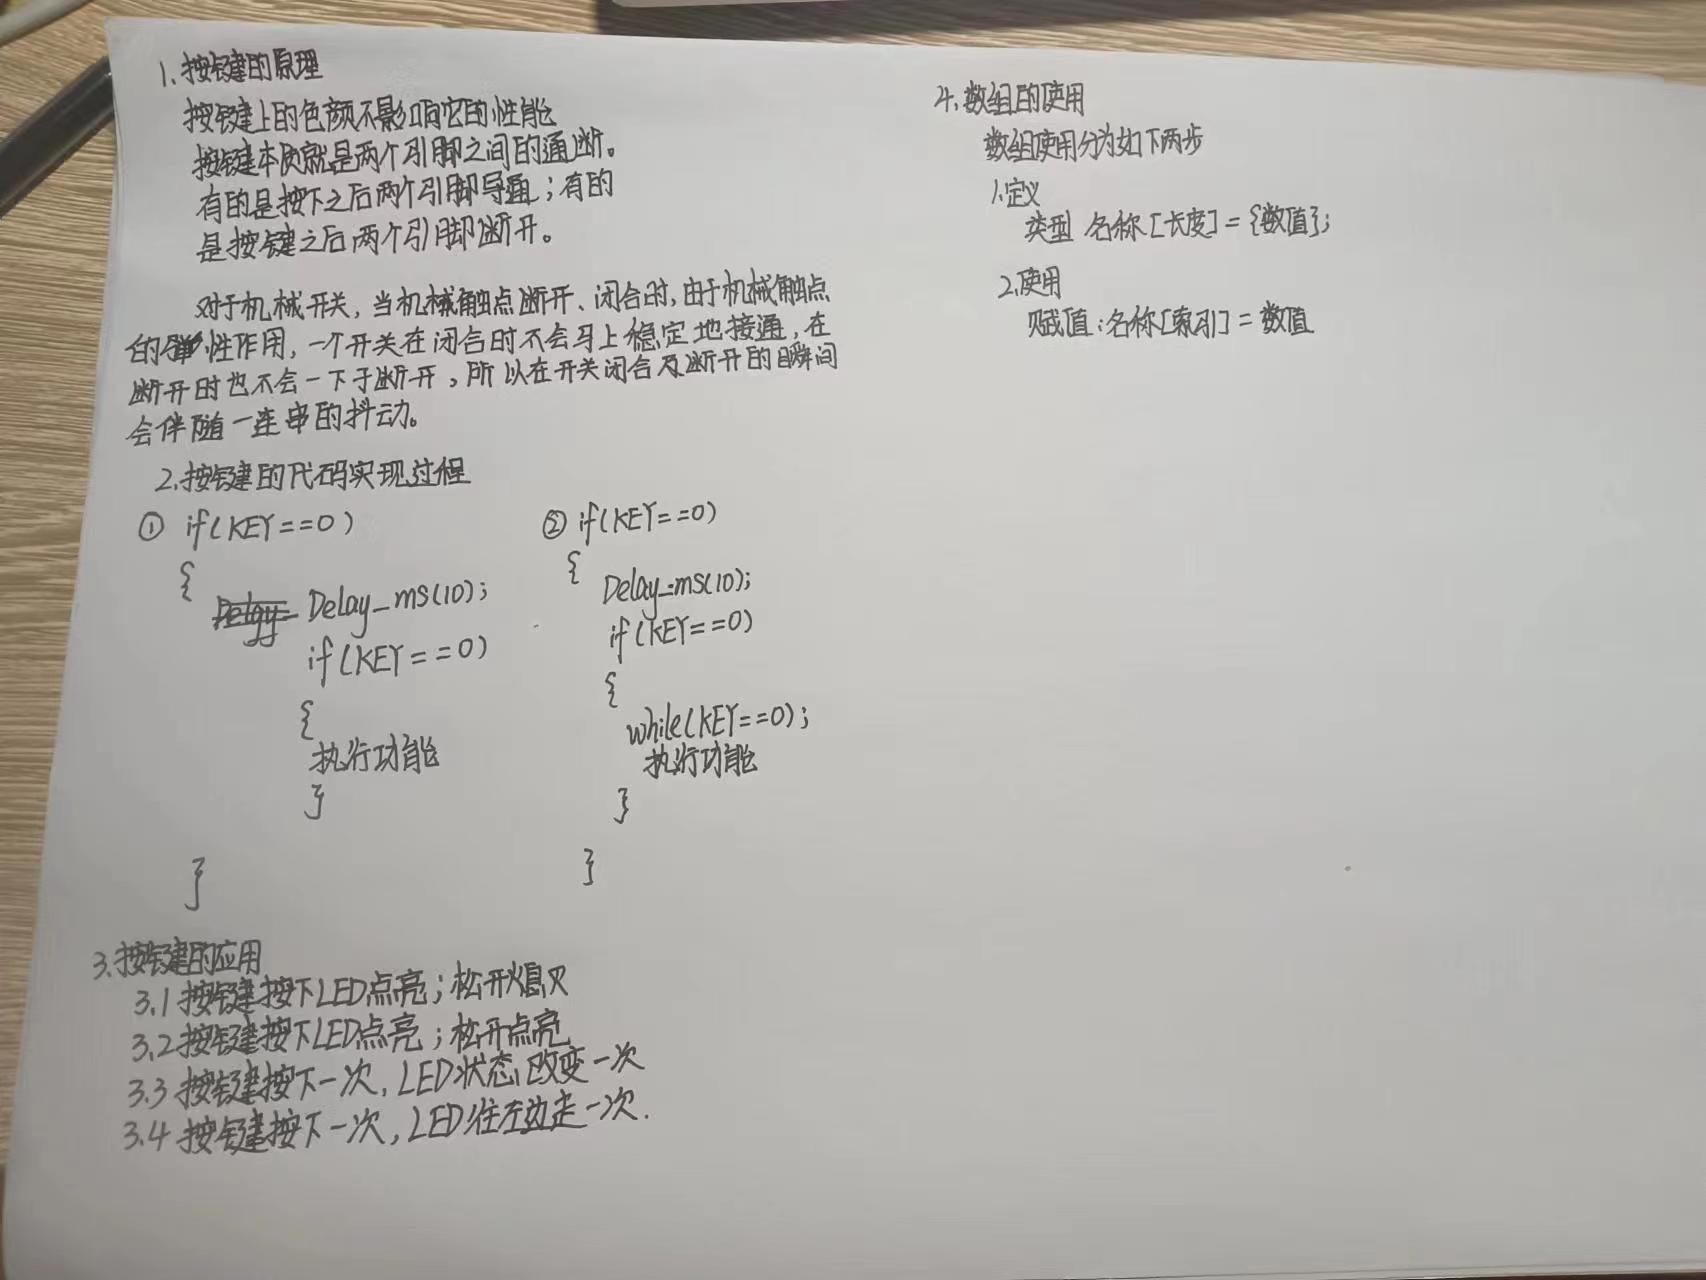 1.按键的原理
按键上的色颜不影响它的性能
按键本质就是两个引脚之间的通断。
有的是按下之后两个引脚导通；有的
是按键之后两个引脚断开。
对于机械开关，当机械触点断开、闭合时，由于机械触点
的弹性作用，一个开关在闭合时不会马上稳定地接通，在
断开时也不会一下子断开，所以在开关闭合及断开的瞬间
会伴随一连串的抖动。
2.按键的代码实现过程
① if(KEY==0)
{
Delay_ms(10);
if(KEY==0)
{
执行功能
}
}
② if(KEY==0)
{
Delay_ms(10);
if(KEY==0)
{
while(KEY==0);
执行功能
}
}
3.按键的应用
3.1 按键按下LED点亮；松开熄灭
3.2 按键按下LED点亮；松开点亮
3.3 按键按下一次，LED状态改变一次
3.4 按键按下一次，LED往左边走一次.
4.数组的使用
数组使用分为如下两步
1.定义
类型 名称[长度]={数值};
2.使用
赋值：名称[索引]=数值